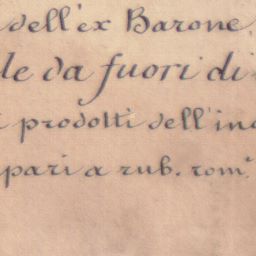 dell'ex Barone
le da fuori di
prodotti dell'in
pari a rub. rom.